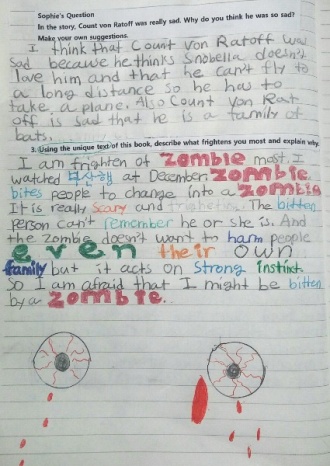 Sophie's Question
In the story, Count von Ratoff was really sad. Why do you think he was so sad?
Make your own suggestions.
I think that Count von Ratoff was
sad because he thinks Snobella doesn't
love him and that he can't fly to
a long distance so he has to
take a plane. Also Count von Rat
off is sad that he is a family of
bats.
3. Using the unique text of this book, describe what frightens you most and explain why.
I am frighten of zombie most. I
watched 부산행 at December. zombie
bites people to change into a zombie
It is really scary and
The bitten
person can't remember he or she is. And
the zombie doesn't want to harm people
even their own
family but it acts on strong instinct.
So I am afraid that I might be bitten
by a zombie.